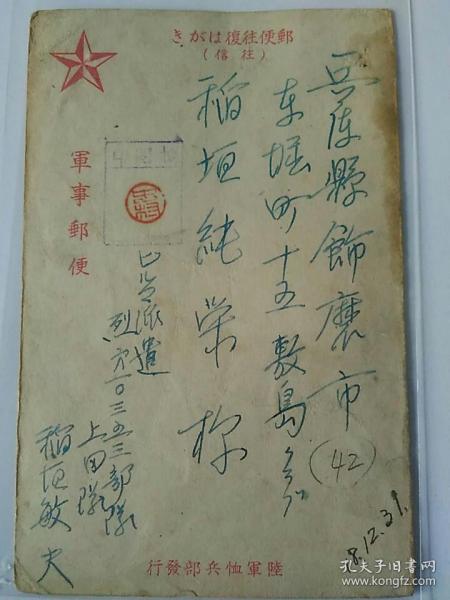 郵便往復はがき
(往信)
兵庫縣飾磨市
東堀町十五敷島クラブ
(42)
稲垣純榮様
軍事郵便
派遣
烈六一〇三五三部隊
上田隊
稲垣敏夫
8.12.31.
陸軍恤兵部發行
孔夫子旧书网